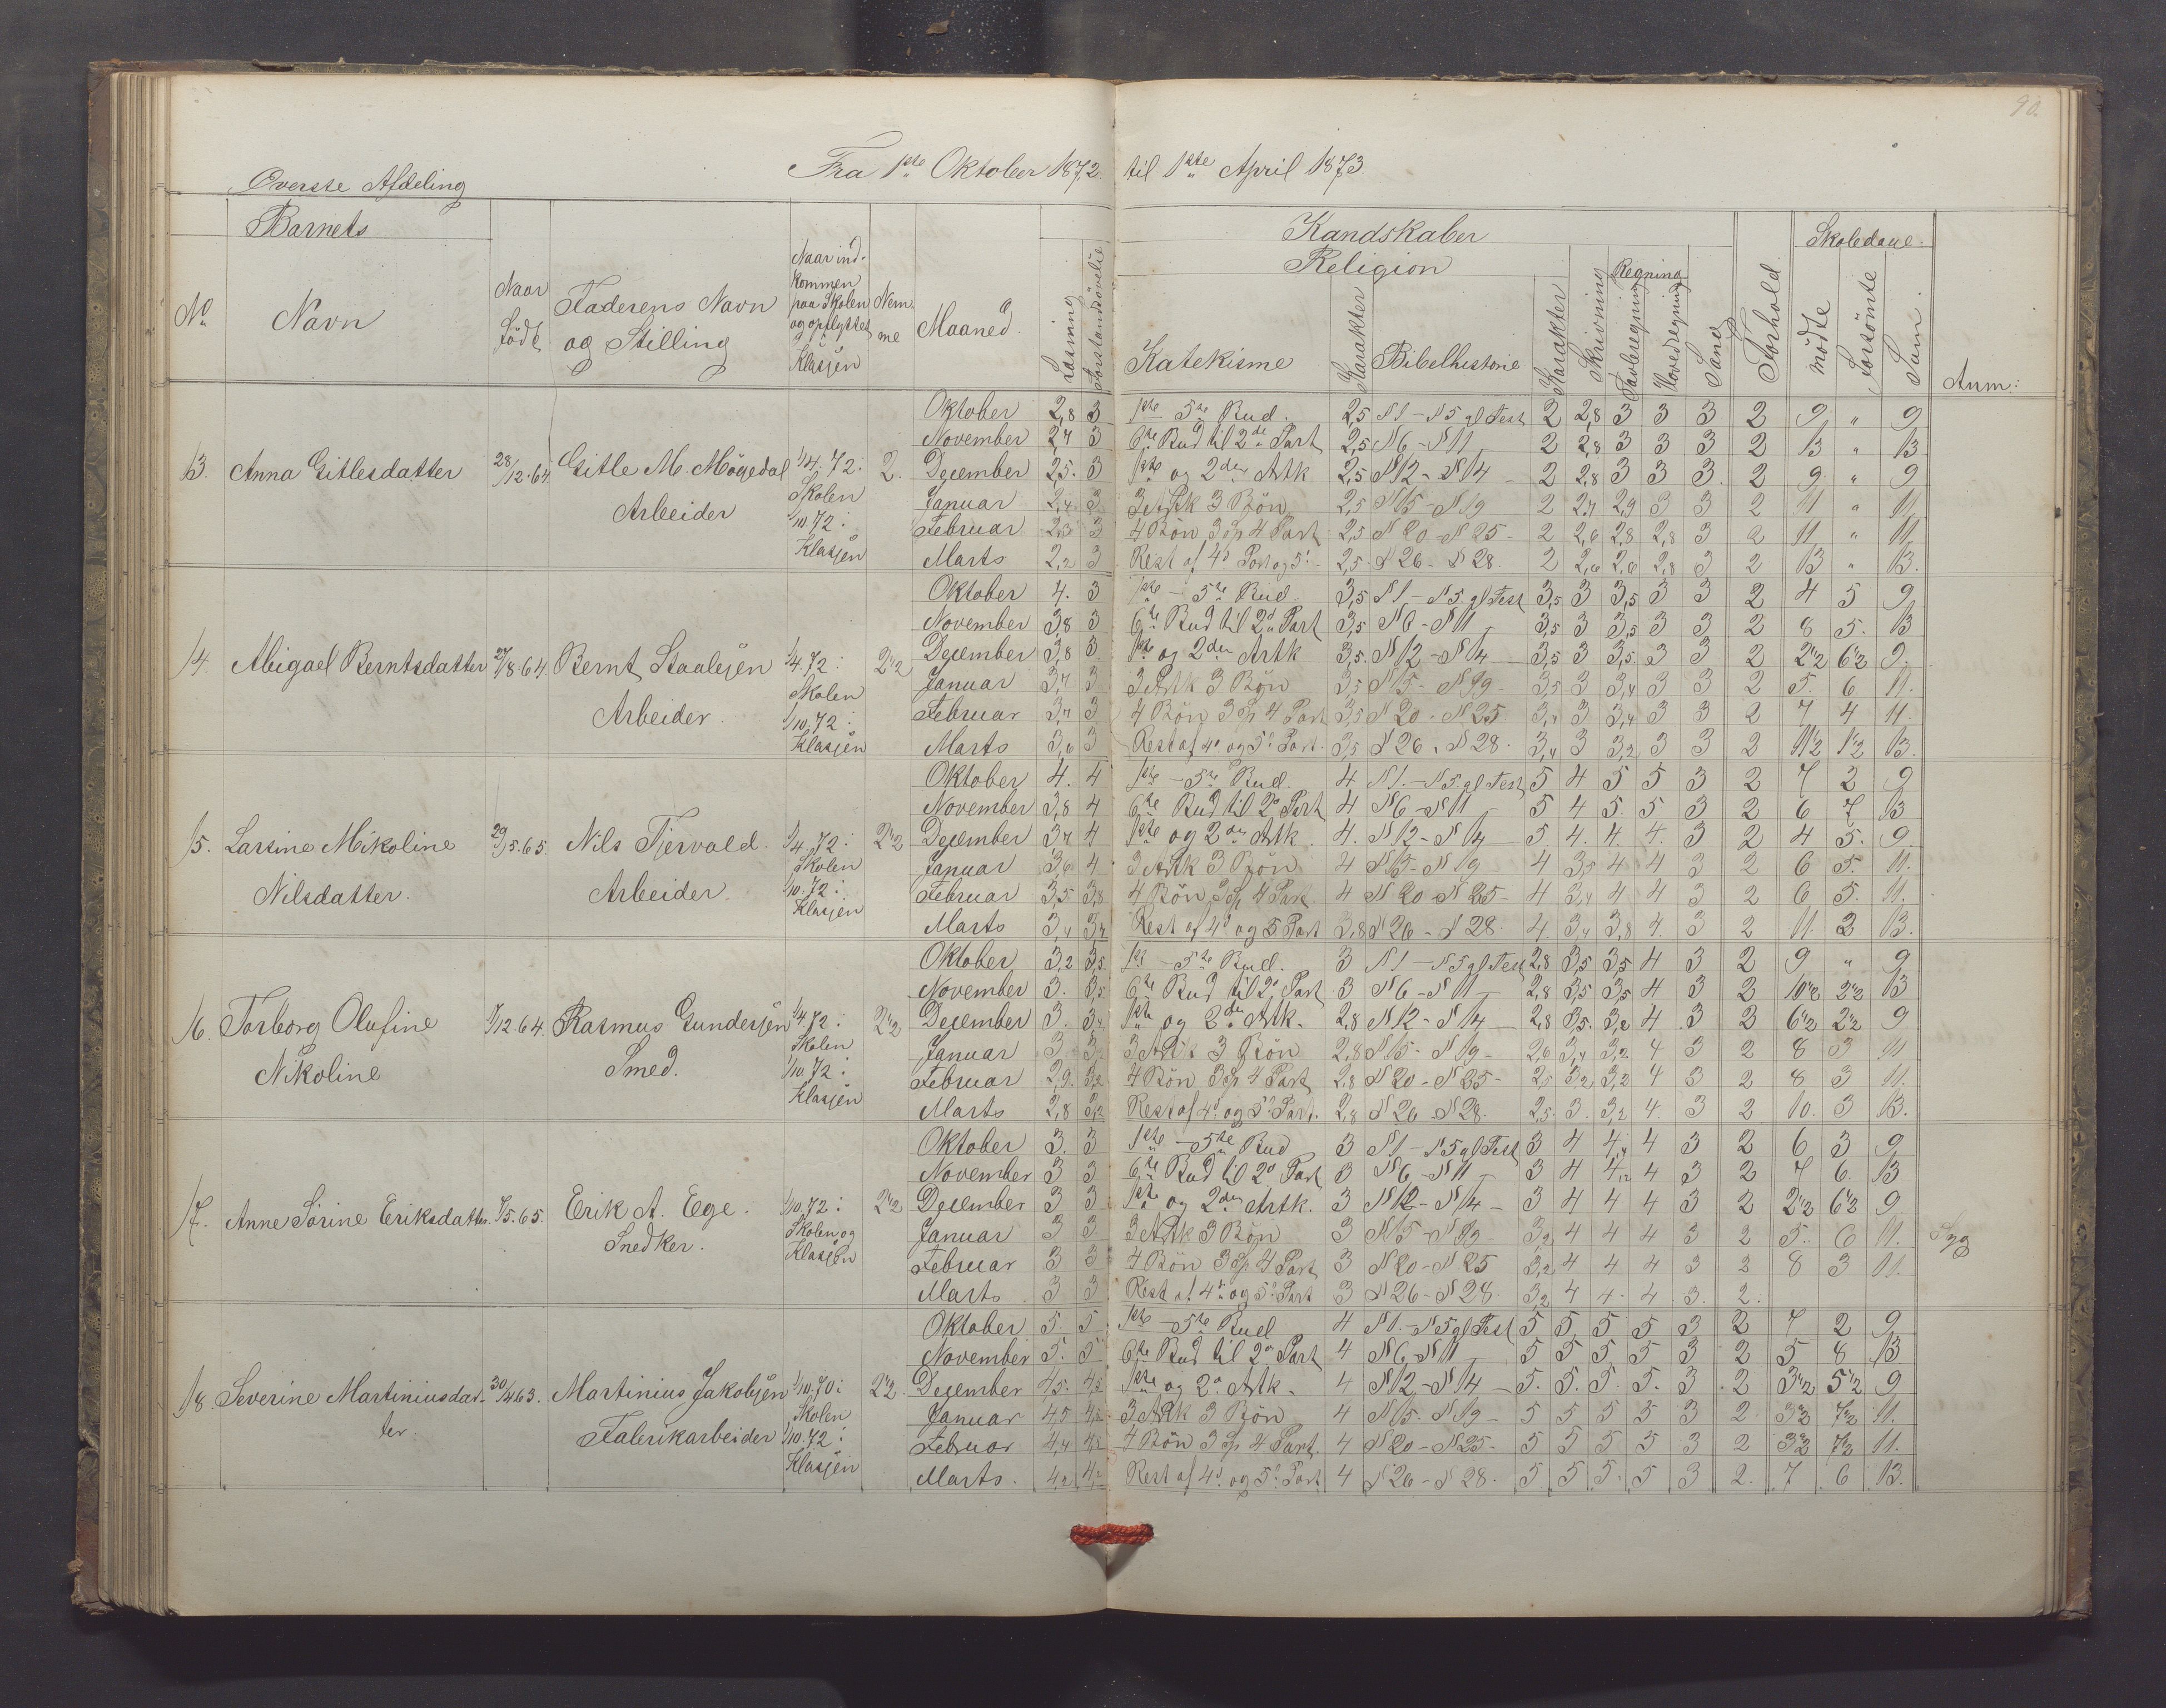 90.
Fra 1ste Oktober 1872. til 1ste April 1873.
Øverste Afdeling
Barnets
No
Navn
Naar Født
Faderens Navn og Stilling
Naar indkommen paa Skolen og opflyttet Klassen
Nemme
Maaned.
Læsning
Forstandsøvelse
Kundskaber
Religion
Katekisme
Karakter
Bibelhistorie
Karakter
Skrivning
Regning
Tavleregning
Hovedregning
Sang
Forhold
Skoledage
mødte
forsömte
Sum.
Anm:
13. Anna Gitlesdatter 28/12.64 Gitle M. Mögedal Arbeider 1/4.72: Skolen 1/10.72: Klassen 2.
Oktober 2,8 3 1ste - 5te Bud. 2,5 N1 - N5 gl Test 2 2,8 3 3 3 2 9 " 9
November 2,7 3 6te Bud til 2den Part 2,5 N6 - N11 2 2,8 3 3 3 2 13 " 13
Dezember 2,5. 3 1ste og 2den Artk 2,5 N12 - N14 - 2 2,8 3 3 3. 2 9 " 9
Januar 2,4 3 3 Artk 3 Bön 2,5 N15 - N19 2 2,7 2,9 3 3 2 11 " 11
Februar 2,3 3 4 Bön 3 Sp 4 Part 2,5 N20 - N25 - 2 2,6 2,8 2,8 3 2 11 " 11.
Marts 2,2 3 Rest af 4d Part og 5t 2,5. N26 - N28. 2 2,6 2,6 2,8 3 2 13 " 13.
14. Abigael Berntsdatter 27/8.64 Bernt Staalesen Arbeider 1/4.72: Skolen 1/10.72: Klassen 2 1/2
Oktober 4. 3 1ste - 5te Bud. 3,5 N1 - N5. gl Test 3,5 3 3,5 3 3 2 4 5 9
November 3,8 3 6te Bud til 2d Part 3,5 N6 - N11 - 3,5 3 3,5 3 3 2 8 5. 13
Dezember 3,8 3 1ste og 2den Artk 3,5. N12 - N14 3,5 3 3,5. 3 3 2 2 1/2 6 1/2 9.
Januar 3,7 3 3 Artk 3 Bön 3,5 N15 - N19 - 3,5 3 3,4 3 3 2 5. 6 11.
Februar 3,7 3 4 Bön 3 Sp 4 Part 3,5 N20 - N25 3,4 3 3,4 3 3 2 7 4 11.
Marts 3,6 3 Rest af 4d. og 5t Part. 3,5 N26 - N28. 3,4 3 3,2 3 3 2 11 1/2 1 1/2 13.
15. Larsine Nikoline Nilsdatter. 29/5.65 Nils Tjervold. Arbeider. 1/4.72: Skolen 1/10.72: Klassen 2 1/2
Oktober 4. 4 1ste - 5te Bud. 4 N1. - N5. gl Test 5 4 5 5 3 2 7 2 9
November 3,8 4 6te Bud til 2d Part 4 N6 - N11 - 5 4 5. 5 3 2 6 7 13
Dezember 3,7 4 1ste og 2den Artk. 4. N12 - N14 5 4. 4. 4. 3 2 4 5. 9.
Januar 3,6 4 3 Artk 3 Bön 4 N15 - N19 - 4 3,5 4 4 3 2 6 5. 11.
Februar 3,5 3,8 4 Bön 3 Sp 4 Part. 4 N20 - N25 - 4 3,4 4 4 3 2 6 5. 11.
Marts 3,4 3,7 Rest af 4d og 5 Part 3,8 N26 - N28. 4. 3,4 3,8 4. 3 2 11. 2 13.
16. Torborg Olufine Nikoline 1/12.64. Rasmus Gundersen Smed. 1/4.72: Skolen 1/10.72: Klassen 2 1/2
Oktober 3,2 3,5 1ste - 5te Bud. 3 N1 - N5 gl Test 2,8 3,5 3,5 4 3 2 9 " 9
November 3. 3,5 6te Bud til 2d Part 3 N6 - N11 - 2,8 3,5 3,5 4 3 2 10 1/2 2 1/2 13
Dezember 3. 3,4 1ste og 2den Artk. 2,8 N12 - N14 2,8 3,5. 3,2 4 3 2 6 1/2 2 1/2 9
Januar 3 3,2 3 Artk 3 Bön 2,8 N15 - N19 - 2,6 3,4 3,2 4 3 2 8 3 11
Februar 2,9. 3,2 4 Bön 3 Sp 4 Part 2,8 N20 - N25 - 2,5 3,2 3,2 4 3 2 8 3 11.
Marts 2,8 3,2 Rest af 4d. og 5t Part. 2,8 N26 - N28. 2,5. 3. 3,2 4. 3 2 10. 3 13.
17. Anne Sörine Eriksdatter. 7/5.65. Erik A. Ege. Snedker. 1/10.72: Skolen og Klassen 2 1/2
Oktober 3. 3 1ste - 5te Bud 3 N1 - N5 gl Test 3 4 4,4 4 3 2 6 3 9
November 3 3 6te Bud til 2d Part 3 N6 - N11 - 3 4 4,2 4 3 2 7 6. 13
Dezember 3 3 1ste og 2den Artk. 3 N12 - N14 - 3 4 4 4 3 2 2 1/2 6 1/2 9
Januar 3 3 3 Artk 3 Bön 3 N15 - N19 - 3,2 4 4 4 3 2 5. 6 11. Syg
Februar 3 3 4 Bön 3 Sp 4 Part 3 N20 - N25 3,2 4 4 4 3 2 8 3 11.
Marts 3 3 Rest af 4d. og 5t Part 3 N26 - N28. 3,2 4 4. 4. 3. 2.
18. Severine Martiniusdatter. 30/4.63. Martinius Jakobsen Fabrikarbeider 1/10.70: Skolen 1/10.72: Klassen 2 1/2
Oktober 5. 5 1ste - 5te Bud 4 N1. - N5 gl Test 5 5 5 5 3 2 7 2 9
November 5. 5 6te Bud til 2d Part 4 N6 - N11 5 5 5 5 3 2 5 8 13
Dezember 4,5. 4,5 1ste og 2d Artk - 4 N12 - N14 - 5. 5. 5. 5. 3 2 3 1/2 5 1/2 9
Januar 4,5 4,5 3 Artk 3 Bön 4 N15 - N19 - 5 5 5 5 3 2 3 1/2 7 1/2 11.
Februar 4,4 4,5 4 Bön 3 Sp 4 Part. 4 N20 - N25 - 5 5 5 5 3 2 3 1/2 7 1/2 11.
Marts. 4,2 4,2 Rest af 4d. og 5t Part 4 N26 - N28. 5 5 5. 5 3 2. 7 6 13.